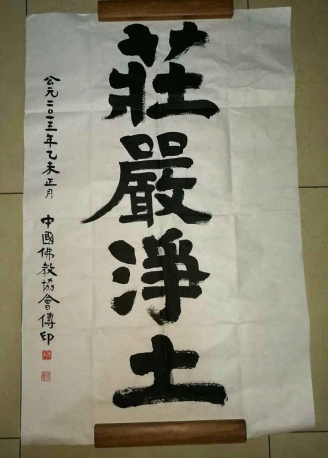 莊嚴淨土
公元二〇一五年乙未正月 中國佛教協會傳印